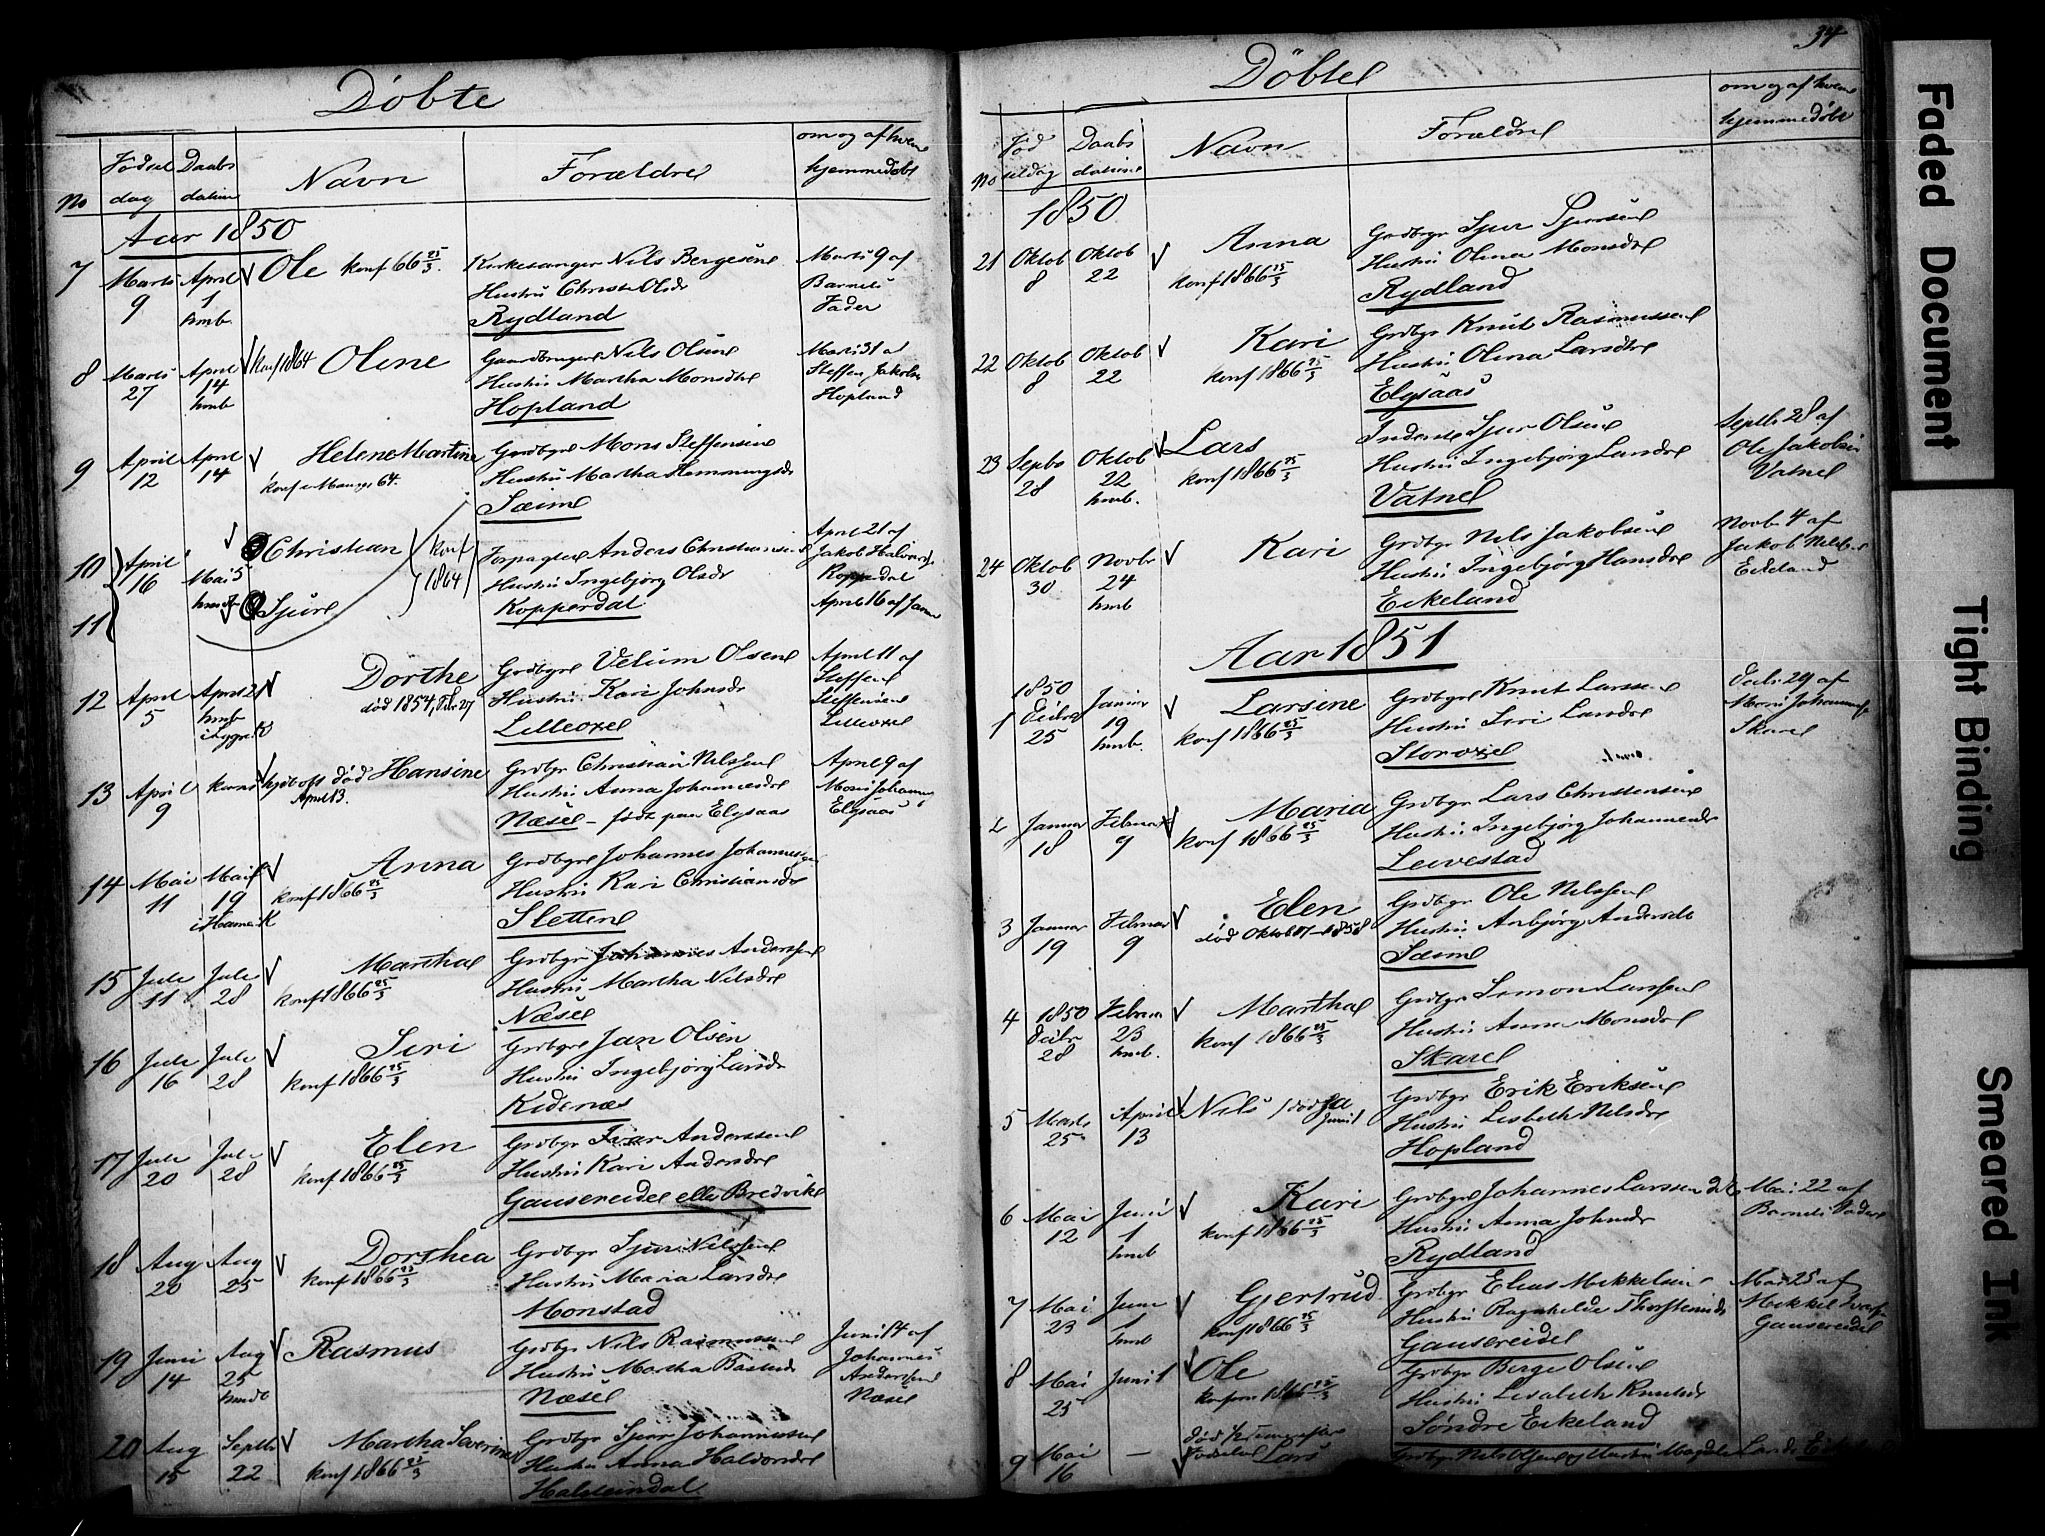 Döbte
No
Födsel dag
Daabs datum
Navn
Forældre
om og af hvem hjemmedöbt
Aar 1850
7 Marts 9 April 1 hmb. Ole konf 66 25/3. Kirkesanger Nils Bergesens Marts 9 af
Hustru Christi Olsdr Barnets
Rydland Fader
8 Marts 27 April 14 hmb konf 1864 Oline Gaardbruger Nils Olsens Marts 31 af
Hustru Martha Monsdtr Steffen Jakobs
Hopland Hopland
9 April 12 April 14 Helene Martine Grdbgr Mons Steffensens
konf i Mange 64. Hustru Martha Hemmingsdr
Sæim
10 April 16 Mai 5 Christian konf 1864 Forpagter Anders Christiansens April 21 af
Hustru Ingebjörg Olsdr Jakob Halvors
11 Sjur Kopperdal Kopperdal
April 16 af
12 April 5 April 21 hmb Dorthe Grdbgr Velum Olsens April 11 af
död 1854, Febr 27 Hustru Kari Johnsdr Steffen
Lilleoxel Steffensens
Lilleoxel
13 April 9 död Hansine Grdbgr Christian Nilssens April 9 af
April 13. Hustru Anna Johannesdr Mons Johannes
Næse - född paa Elgsaas Elgsaas
14 Mai 11 Mai 19 Anna Grdbgr Johannes Johannes
i Hame K konf 1866 25/3 Hustru Kari Christiansdr
Sletten
15 Juli 11 Juli 28 Martha Grdbgr Johannes Anderssens
konf 1866 25/3 Hustru Martha Nilsdr
Næse
16 Juli 16 Juli 28 Siri Grdbgr Jan Olsen
konf 1866 25/3 Hustru Ingebjörg Larsdr
Kidenæs
17 Juli 20 Juli 28 Elen Grdbgr Ivar Anderssens
konf 1866 25/3 Hustru Kari Andersdr
Gausereidet eller Bredvike
18 Aug 20 Aug 25 Dorthea Grdbgr Sjur Nilssens
konf 1866 25/3 Hustru Maria Larsdr
Monstad
19 Juni 14 Aug 25 Rasmus Grdbgr Nils Rasmussens Juni 14 af
Hustru Martha Johannes
Næse Anderssens
Næse
20 Aug 15 Septb 22 Martha Severine Grdbgr Sjur Johannessens
konf 1866 25/3 Hustru Anna Haldorsdr
Halsteindal
34
Döbte
No
Föd selsdag
Daabs datum
Navn
Forældre
om og af hvem hjemmedöbt
1850
21 Oktob 8 Oktob 22 Anna Grdbgr Sjur Sjursens
konf 1866 25/3 Hustru Olina Monsdr
Rydland
22 Oktob 8 Oktob 22 Kari Grdbgr Knut Rasmussens
konf 1866 25/3 Hustru Olina Larsdr
Elgsaas
23 Septb 28 Oktob 22 hmb. Lars Inderst Sjur Olsens Septb. 28 af
konf 1866 25/3 Hustru Ingebjörg Larsdr Ole Jakobsen
Vatne Vatne
24 Oktob 30 Novbr 24 hmb Kari Grdbgr Nils Jakobsens Novbr 4 af
Hustru Ingebjörg Hansdr Jakob Nilsen
Eikeland Eikeland
Aar 1851
1 1850 Decbr 25 Januar 19 hmb. Larsine Grdbgr Knut Larssens Decbr. 29 af
konf 1866 25/3 Hustru Siri Larsdr Mons Johannes
Storoxel Skare
2 Januar 18 Februar 9 Maria Grdbgr Lars Christensens
konf 1866 25/3 Hustru Ingebjörg Johannesdr
Leivestad
3 Januar 19 Februar 9 Elen Grdbgr Ole Nilssens
död Oktob 17 - 1858 Hustru Anbjörg Andersdr
Sæim
4 1850 Decbr 28 Februar 23 hmb. Martha Grdbgr Simon Larssens
konf 1866 25/3 Hustru Anna Monsdr
Skare
5 Marts 25 April 13 Nils död Juni 1 Grdbgr Erik Eriksens
Hustru Lisbeth Nilsdr
Hopland
6 Mai 12 Juni 1 hmb Kari Grdbgr Johannes Larssens Mai 22 af
konf 1866 25/3 Hustru Anna Johnsdr Barnets Fader
Rydland
7 Mai 23 Juni 1 hmb Gjertrud Grdbgr Elias Mikkelsens Mai 25 af
konf 1866 25/3 Hustru Ragnhilde Thorsteinsdr Mikkel Ivars
Gausereidet Gausereidet
8 Mai 25 Juni 1 Ole Grdbgr Berge Olsens
konf 1866 25/3 Hustru Lisabeth Knutsdr
Söndre Eikeland
9 Mai 16 — död Lars Grdbgr Nils Olsens Hustru Magdele Larsdr
Faded Document
Tight Binding
Smeared Ink